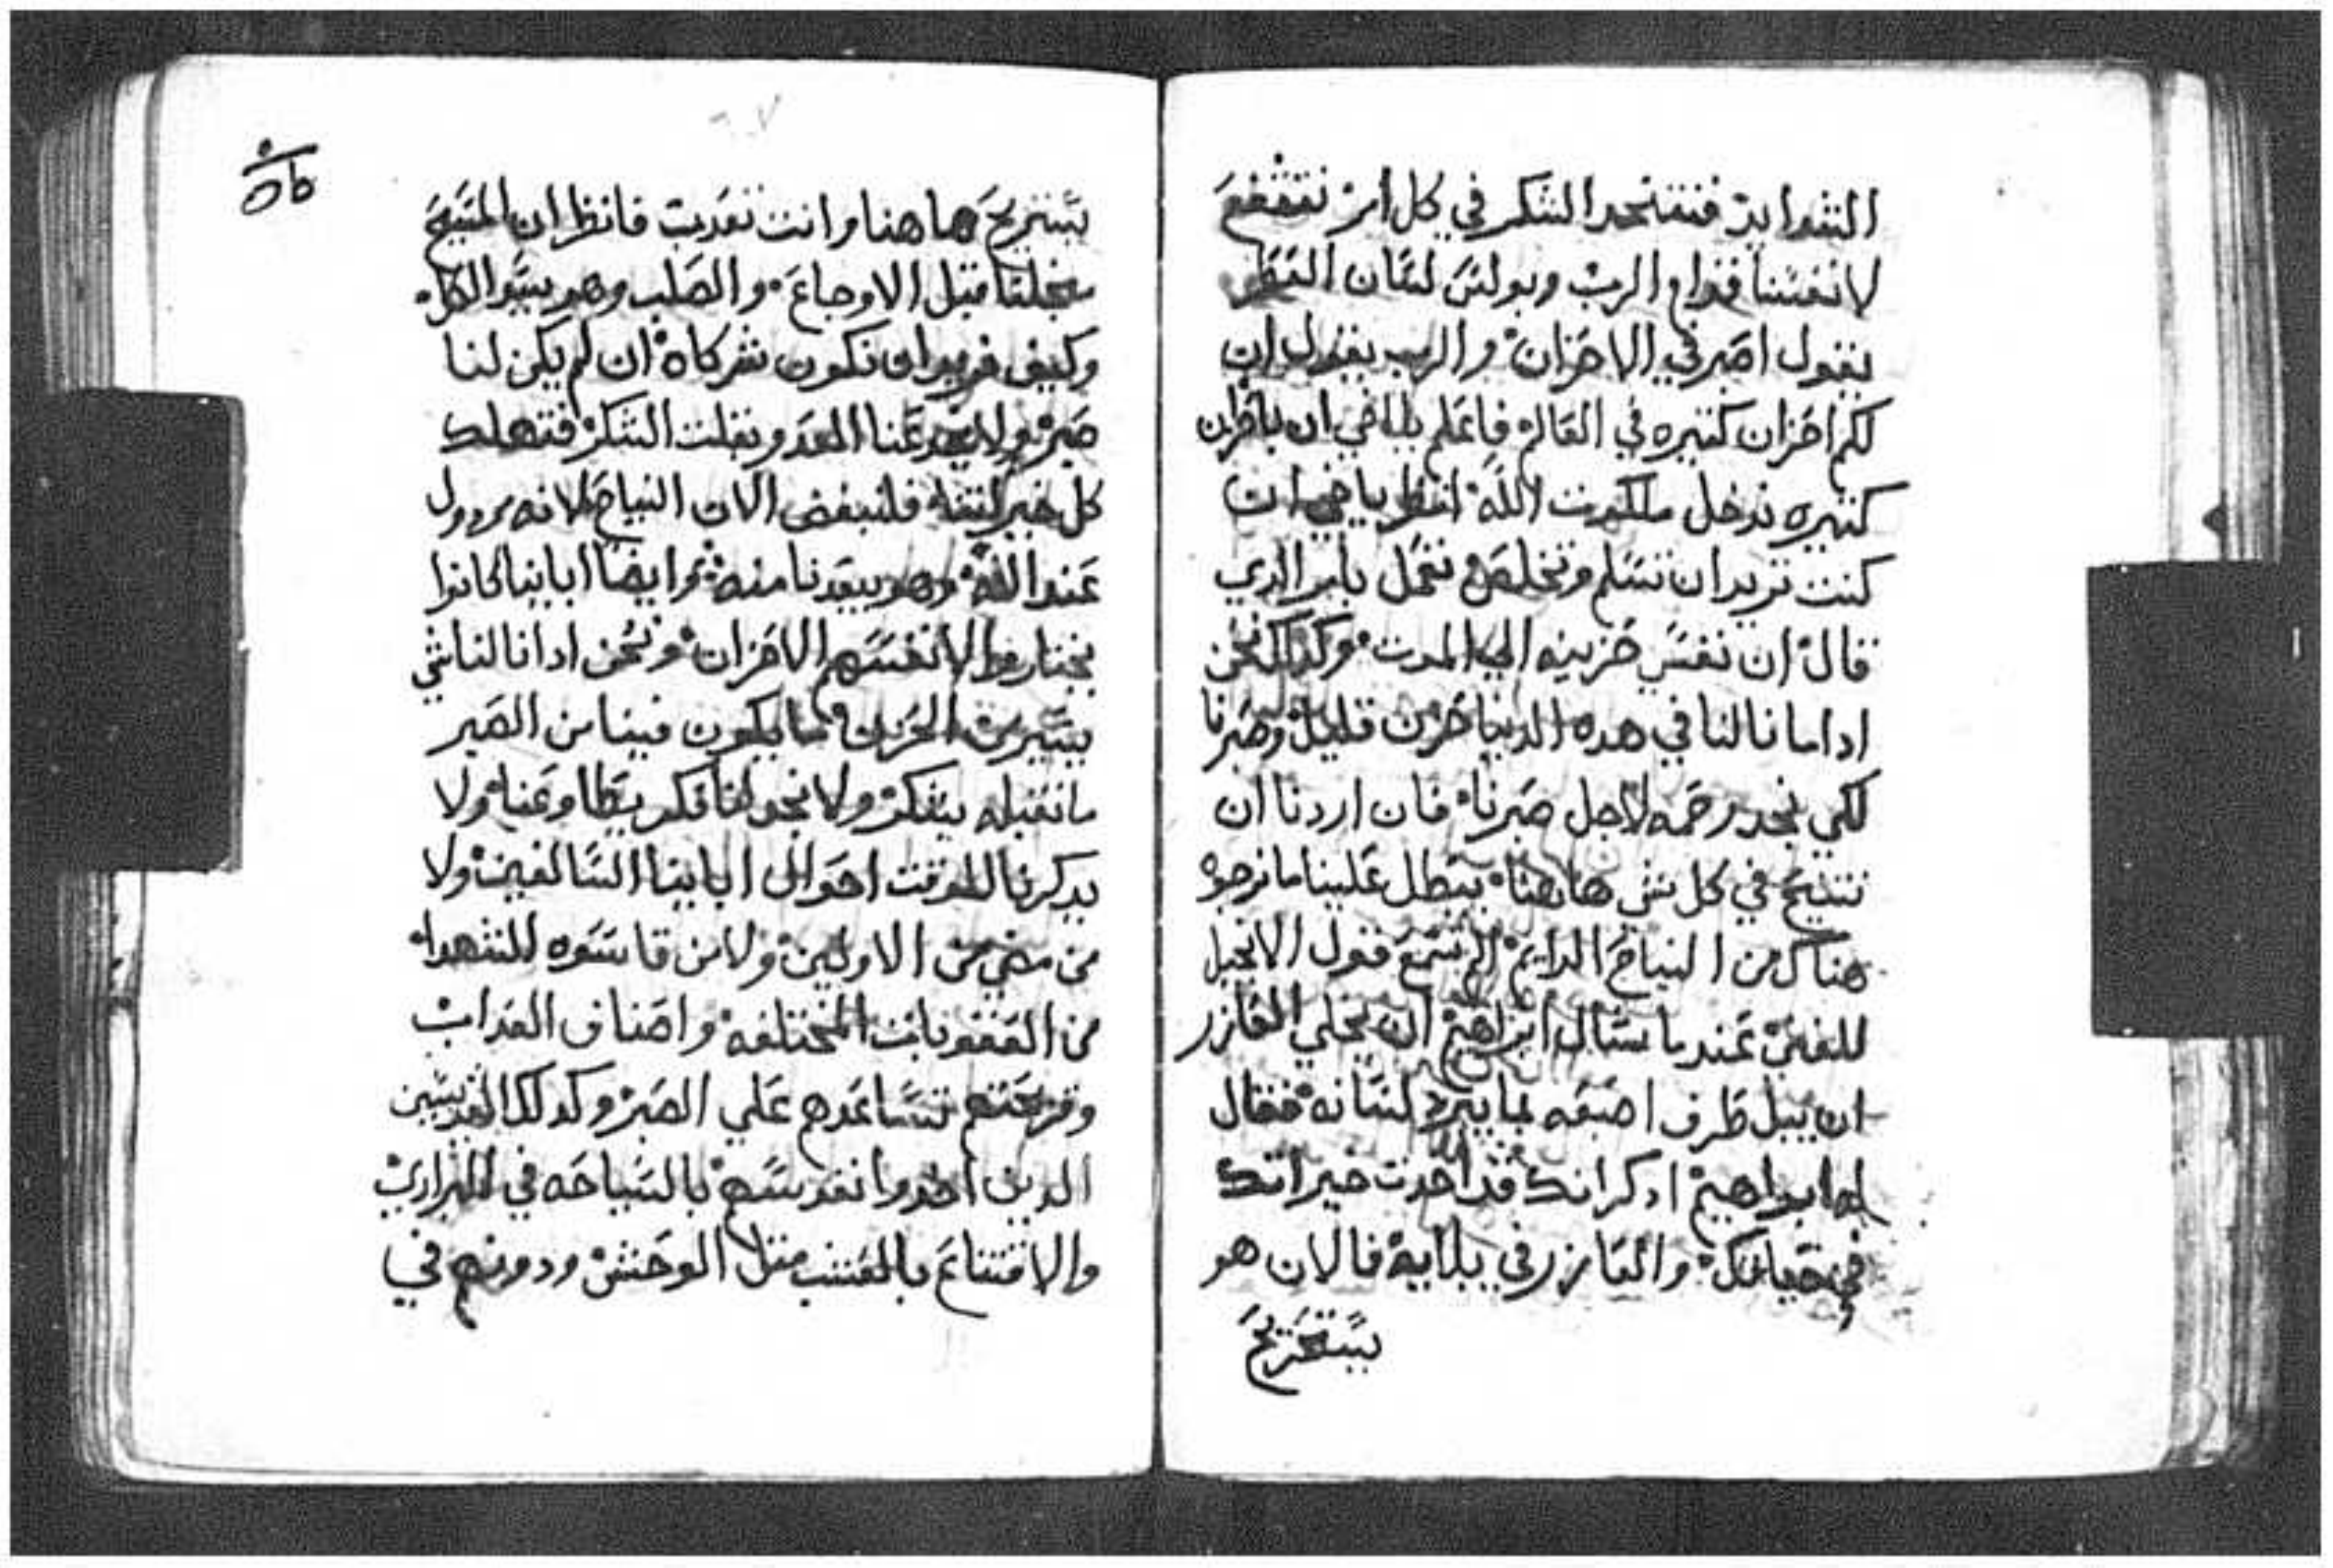 الشدايد فنفتحد الشكر في كل امر نتفعع
لانفسنا قدام الرب وبولس لسان العطر
يقول اصبر في الاحزان والرب يقول ان
لكم احزان كتيره في العالم فاعلم يااخي ان باحزان
كتيره ندخل ملكوت الله انظر يااخي ان
كنت تريد ان تسلم وتخلص تمل بامر الدي
قال ان نفسي حزينه الي الموت وكدلك نحن
ادا ما نالنا في هده الدنيا حزن قليل وصبرنا
لكي نجد رحمه لاجل صبرنا فان اردنا ان
نتنيح في كل شي هاهنا يبطل علينا ما نرجوه
هناك من النياح الدايم الم تسمع قول الانجيل
للغني عند ما سال ابراهيم ان يخلي العازر
ان يبل طرف اصبعه بما يبرد لسانه فقال
له ابراهيم ادكر انك قد اخدت خيراتك
في حياتك والعازر في بلايه فالان هو
يستريح
يستريح هاهنا وانت تعدب فانظر ان المسيح
من اجلنا قبل الاوجاع والصلب وهو سيد الكل
وكيف نريد ان نكون شركاه ان لم يكن لنا
صبر ولا يبعد عنا العدو ونفلت الشكر فتهلك
كل خير لنفسه فلنبغض الان النياح لانه مردول
عند الله وهو يبعدنا منه وايضا اباينا كانوا
يختاروا لانفسهم الاحزان ونحن ادا نالنا شي
يسير من الحزن ما يكون فينا من الصبر
ما نقبله بتفكر ولا نجد لنا فكر يقظا وعنا ولا
يدكرنا للوقت احوال اباينا السالفين ولا
من مضي من الاولين ولا من قاسوه للشهدا
من العقوبات المختلفه واصناف العداب
وقريحتهم تساعدهم علي الصبر وكدلك القديسين
الدين اجهدوا نفوسهم بالسياحه في البراري
والاقتناع بالعشب متل الوحش ودونهم في